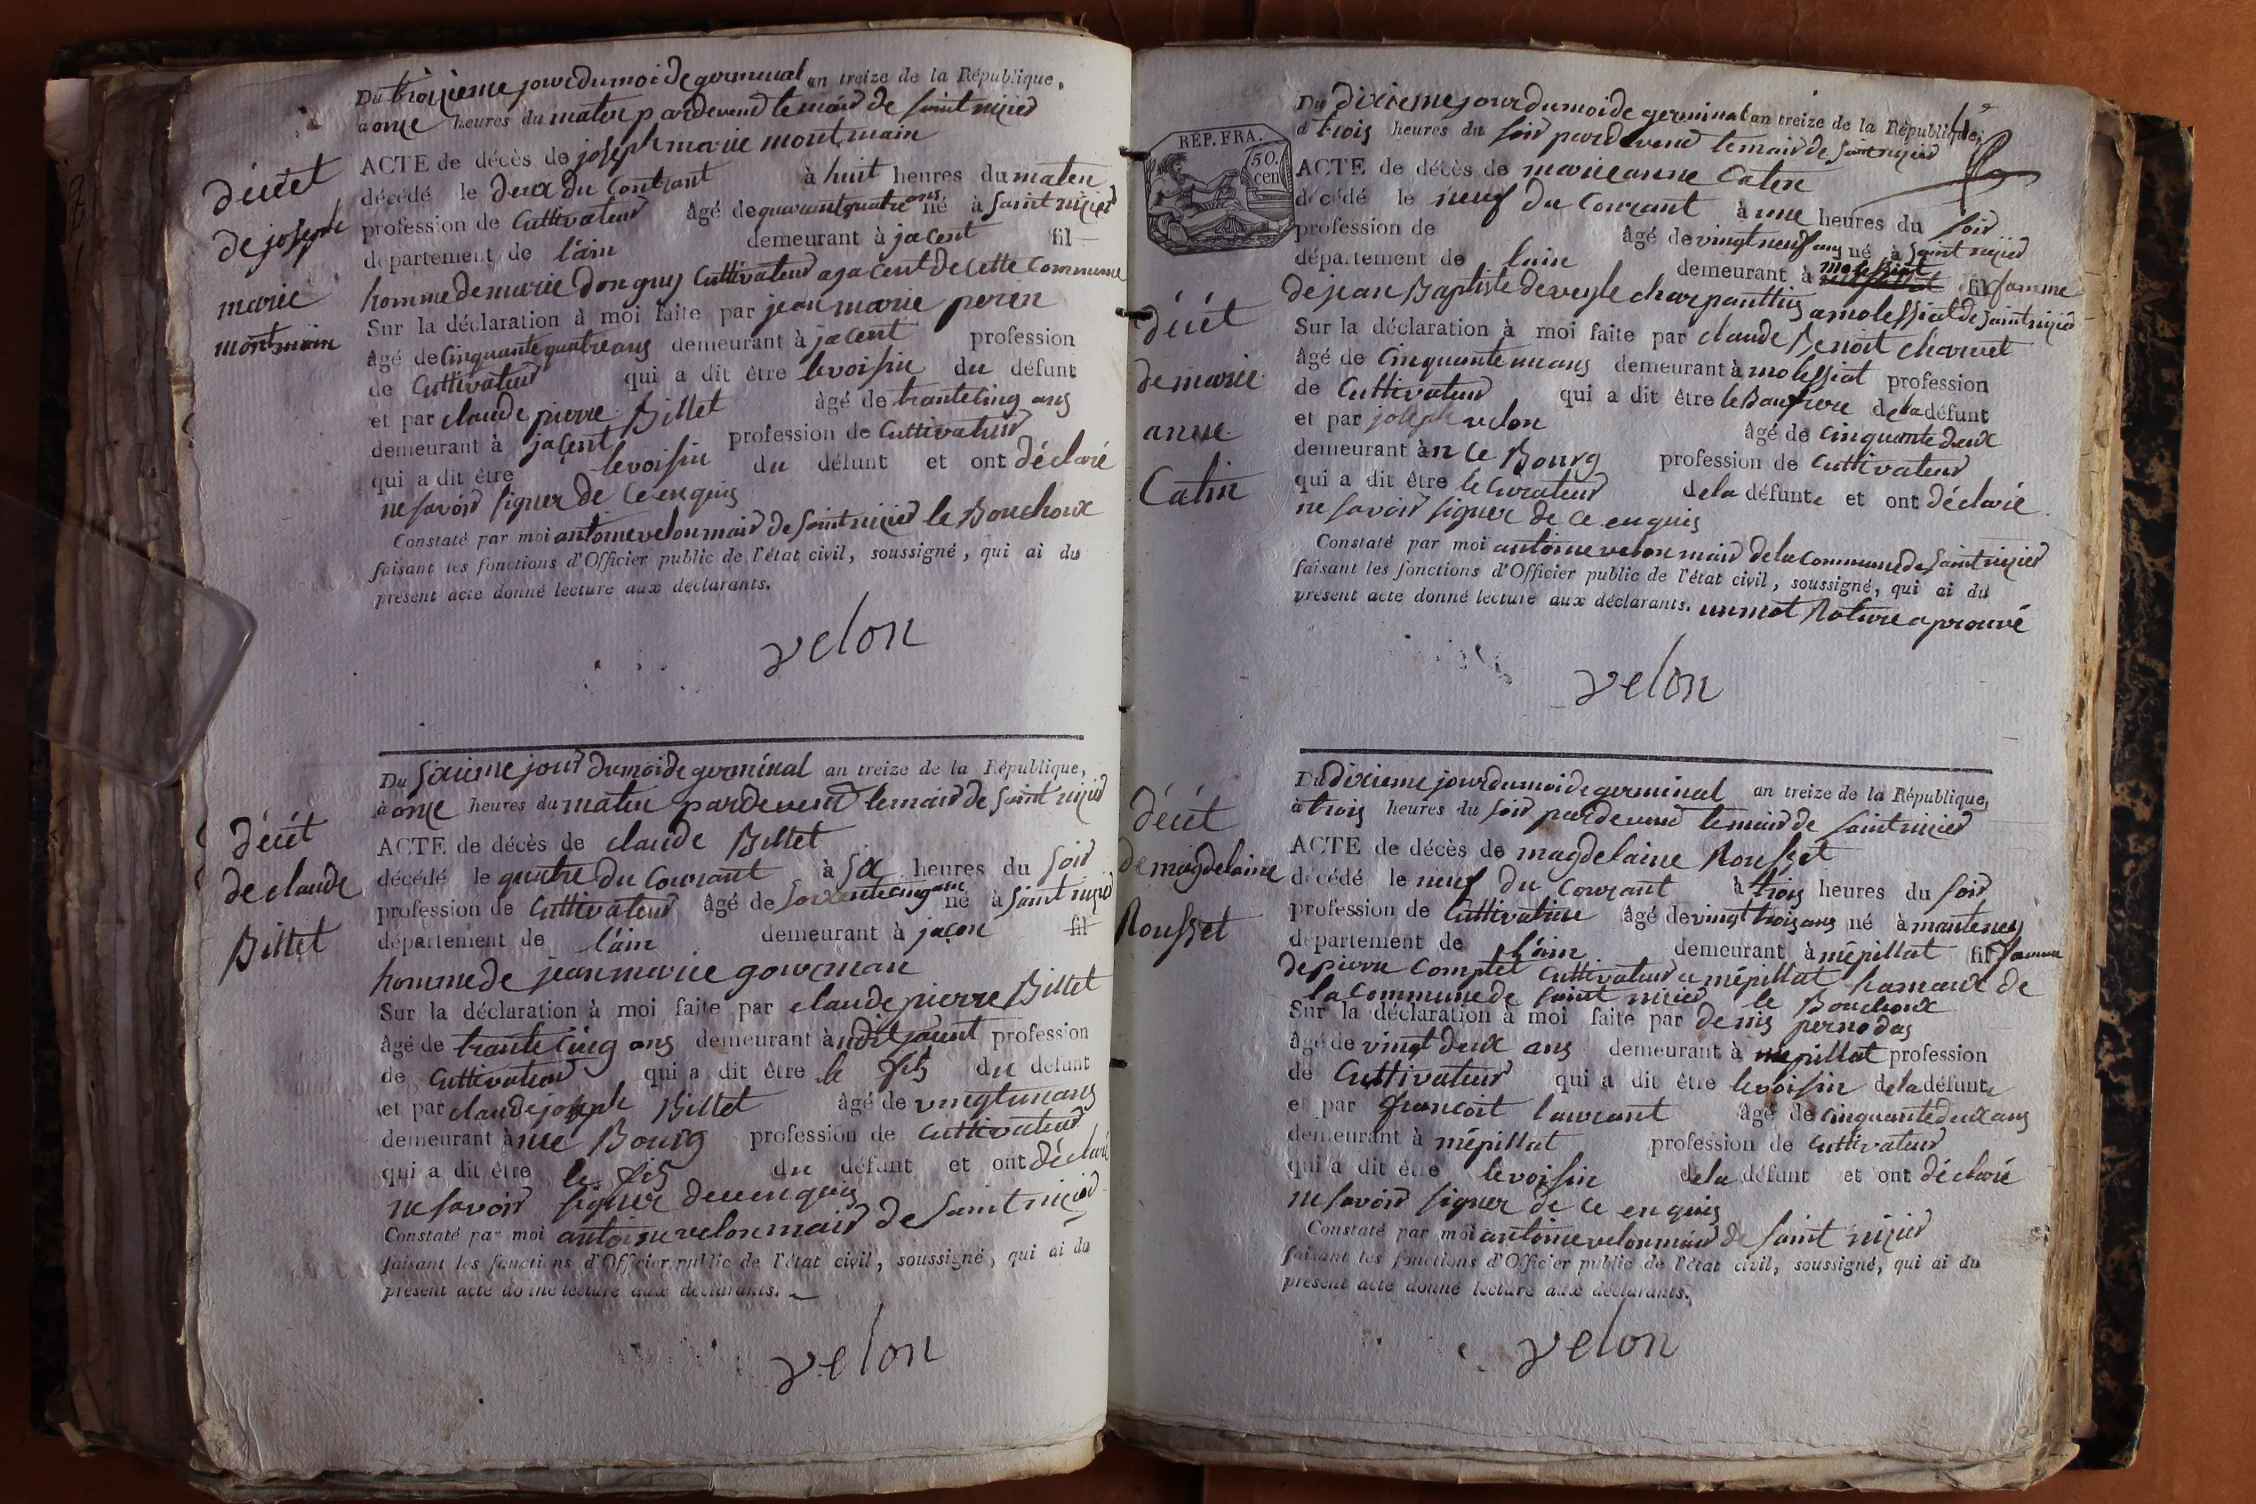 Du troisieme jour du moi de germinal an treize de la République,
a onze heures du maten pardevend le maire de saint nizier
ACTE de décès de joseph marie montmain
décédé le deux du Courant à huit heures du maten
profession de Cultivateur âgé de quarant quatre ans né à saint nizier
département de l'ain demeurant à jacent fil
homme de marie donguy Cultivateur a jacent de cette Commune
Sur la déclaration à moi faite par jean marie perin
âgé de Cinquante quatre ans demeurant à jacent profession
de Cultivateur qui a dit être le voisin du défunt
et par claude pierre Billet âgé de trante Cinq ans
demeurant à jacent profession de Cultivateur
qui a dit être le voisin du défunt et ont déclaré
ne savoir signer de Ce enquis
Constaté par moi antoine velon maire de saint nizier le Bouchoux
faisant les fonctions d'Officier public de l'état civil, soussigné, qui ai du
présent acte donné lecture aux déclarants.
velon
décét
de joseph
marie
montmain
Du sixieme jour du moi de germinal an treize de la République,
à onze heures du maten pardevend le maire de saint nizier
ACTE de décès de claude Billet
décédé le quatre du Courant à six heures du soir
profession de Cultivateur âgé de soixante cinq ans né à saint nizier
département de l'ain demeurant à jaçon fil
homme de jean marie gourman
Sur la déclaration à moi faite par claude pierre Billet
âgé de trante Cinq ans demeurant à dit jacent profession
de Cultivateur qui a dit être le fils du défunt
et par claude joseph Billet âgé de vingt un ans
demeurant à Bourg profession de Cultivateur
qui a dit être le fils du défunt et ont déclaré
ne savoir signer de ce enquis
Constaté par moi antoine velon maire de saint nizier
faisant les fonctions d'Officier public de l'état civil, soussigné, qui ai du
présent acte donné lecture aux déclarants.
velon
décét
de claude
Billet
REP. FRA.
50.
cen
Du dixieme jour du moi de germinal an treize de la République,
à trois heures du soir pardevend le maire de saint nizier
ACTE de décès de marie anne Catin
décédé le neuf du Courant à une heures du soir
profession de âgé de vingt neuf ans né à saint nizier
département de l'ain demeurant à molessiat fil famme
de jean Baptiste deveyle charpanttier a molessiat de saint nizier
Sur la déclaration à moi faite par claude Benoit charvet
âgé de Cinquante un ans demeurant à molessiat profession
de Cultivateur qui a dit être le Baufrere de la défunt
et par joseph velon âgé de cinquante deux
demeurant à n Ce Bourg profession de Cultivateur
qui a dit être le Curateur de la défunte et ont déclaré
ne savoir signer de Ce enquis
Constaté par moi antoine velon maire de la Commune de saint nizier
faisant les fonctions d'Officier public de l'état civil, soussigné, qui ai du
présent acte donné lecture aux déclarants. un mot Rature aprouvé
velon
décét
de marie
anne
Catin
Du dixieme jour du moi de germinal an treize de la République,
à trois heures du soir pardevend le maire de saint nizier
ACTE de décès de magdelaine Rousset
décédé le neuf du Courant à trois heures du soir
profession de Cultivatrice âgé de vingt trois ans né à manteney
département de l'ain demeurant à mépillat fil famme
de pierre Comptet Cultivateur a mépillat hamaux de
la Commune de saint nizier le Bouchoux
Sur la déclaration à moi faite par denis pernodas
âgé de vingt deux ans demeurant à mépillat profession
de Cultivateur qui a dit être le voisin de la défunte
et par francoit laurant âgé de cinquante deux ans
demeurant à mépillat profession de Cultivateur
qui a dit être le voisin de la défunt et ont déclaré
ne savoir signer de Ce enquis
Constaté par moi antoine velon maire de saint nizier
faisant les fonctions d'Officier public de l'état civil, soussigné, qui ai du
présent acte donné lecture aux déclarants.
velon
décét
de magdelaine
Rousset